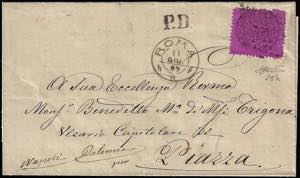 P.D.
ROMA
11
GIU
69
A Sua Eccellenza Rvma
Monsr Benedetto Ma di Msi Trigona
Vicario Capitolare di
Napoli Palermo
per Piazza